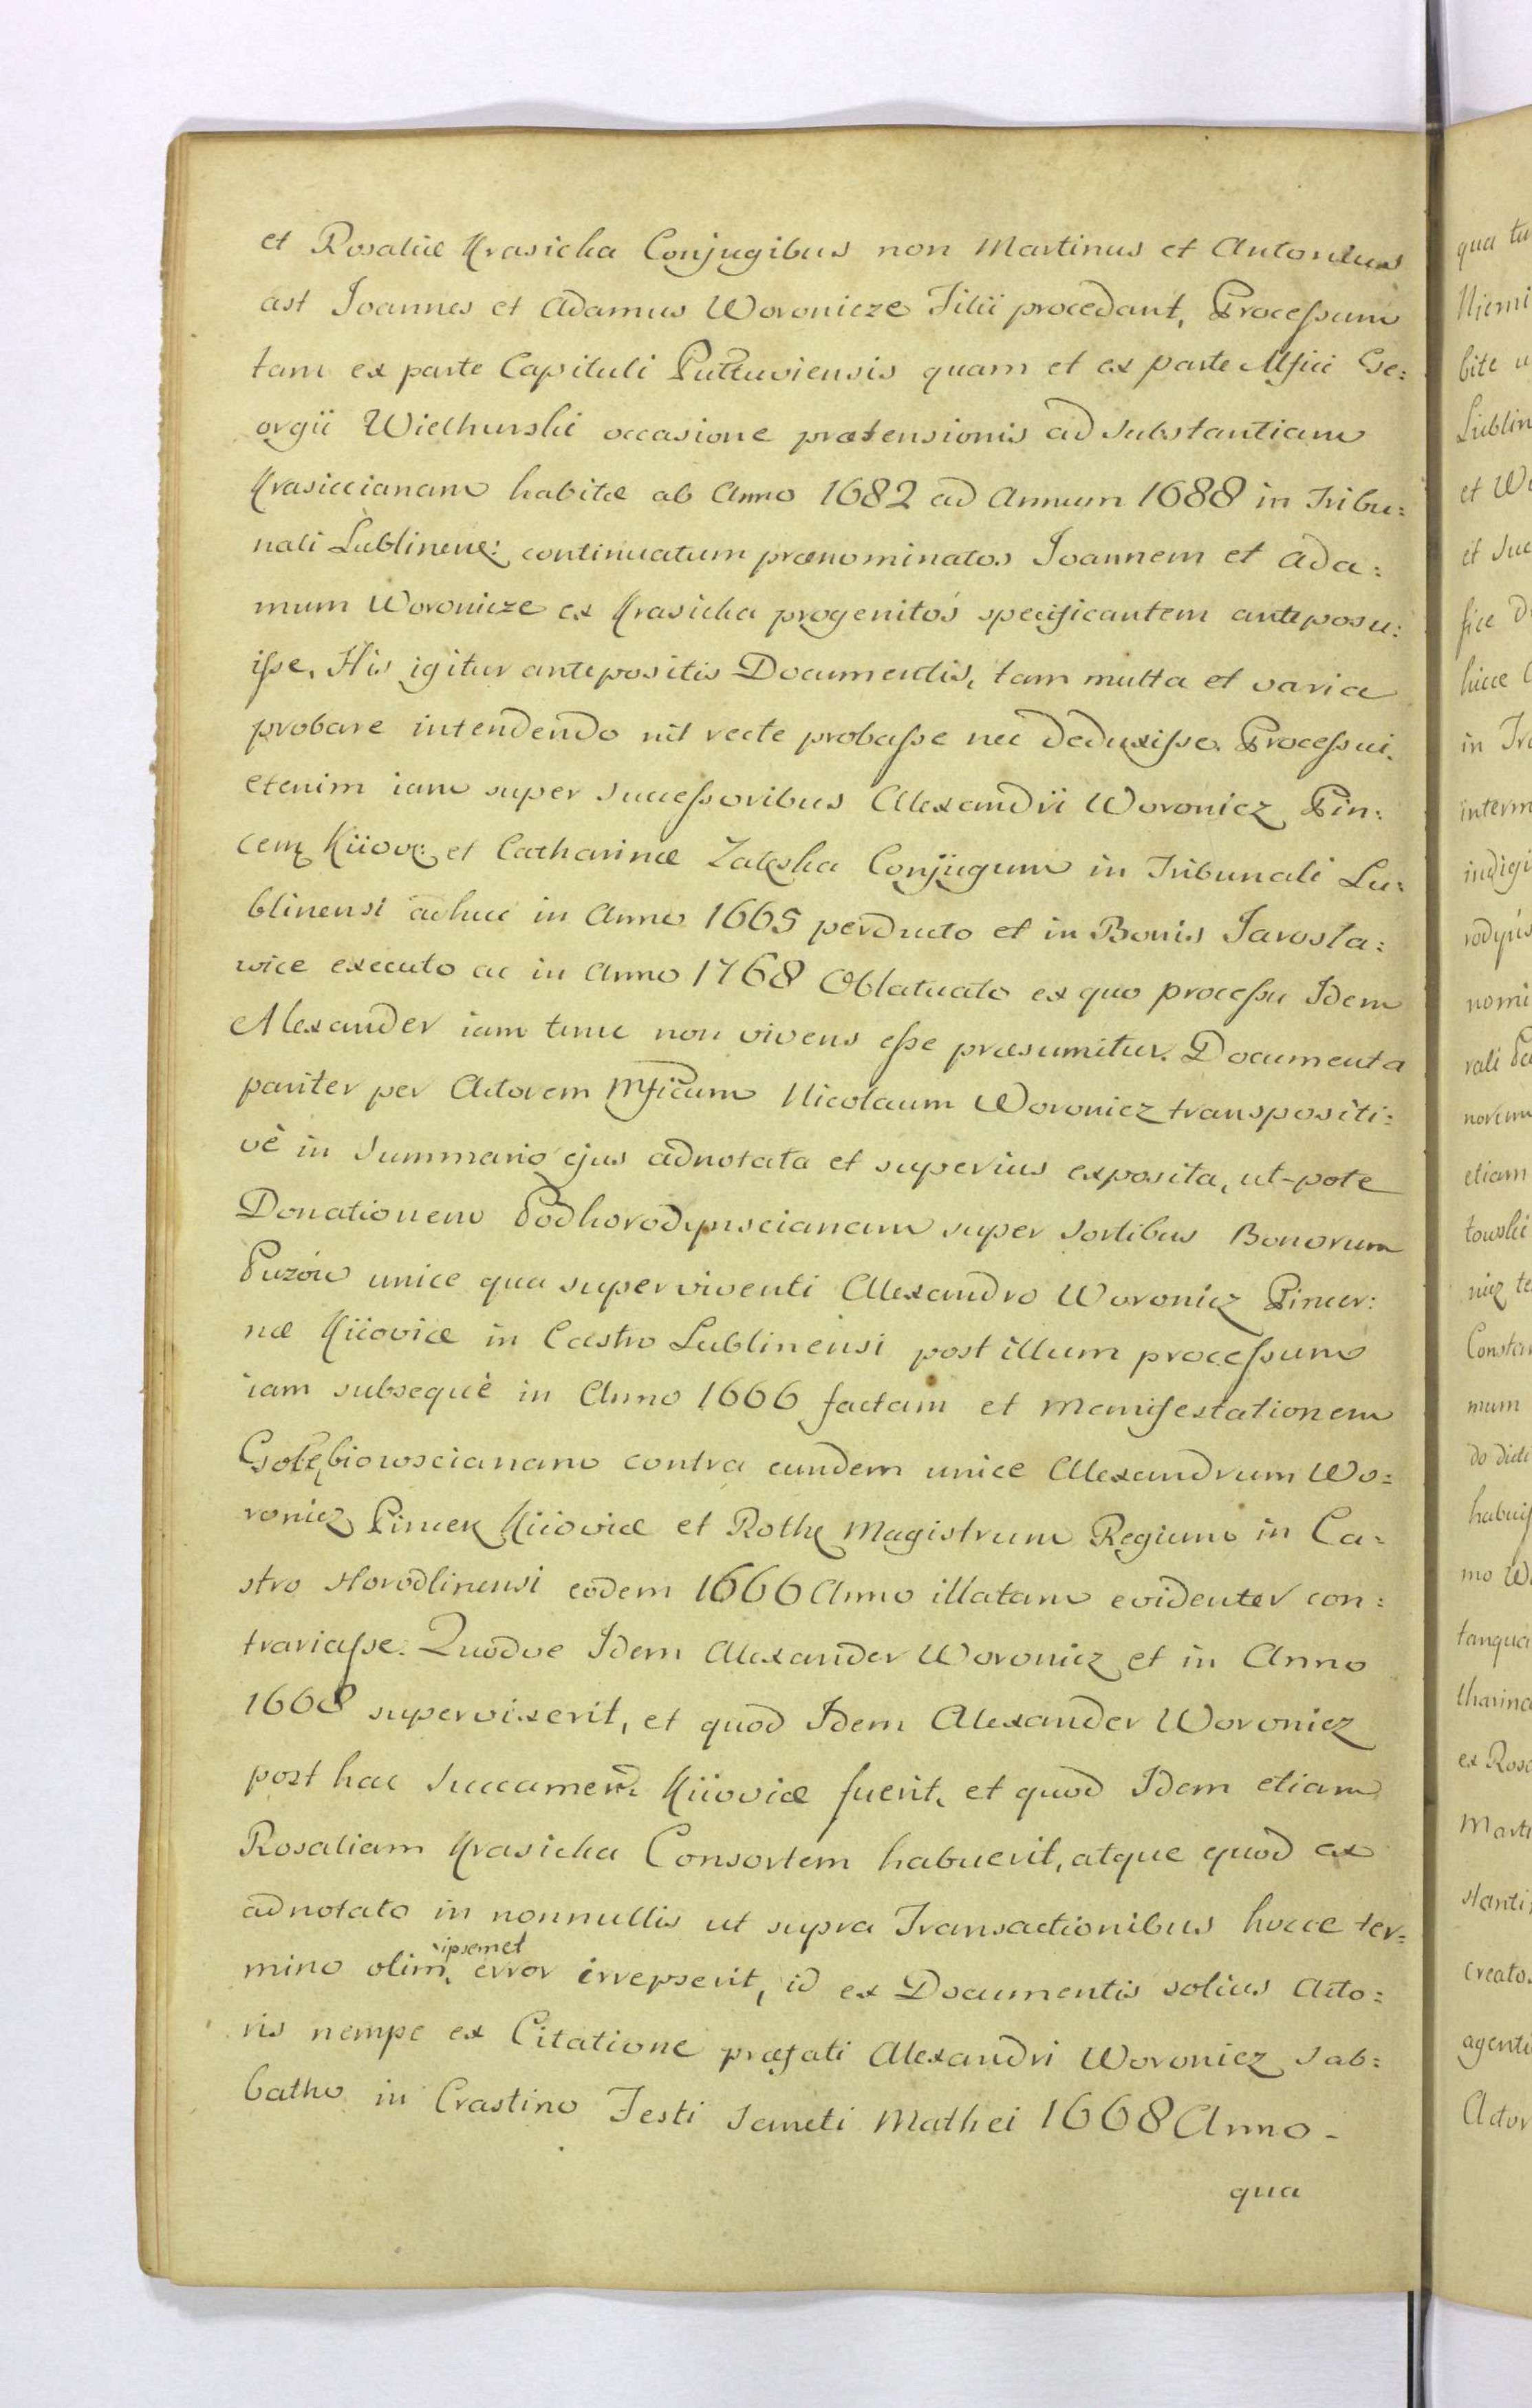 et Rosaliæ Krasicka Conjugibus non Martinus et Antonius
ast Joannes et Adamus Woronicze Filii procedant, Processum
tam ex parte Capituli Pultuviensis quam et ex parte Mfici Ge:
orgii Wielhurski occasione prætensionis ad Substantiam
Krasiccianam habitæ ab Anno 1682 ad Annum 1688 in Tribu:
nali Lublinen: continuatum prænominatos Joannem et Ada:
mum Woronicze ex Krasicka progenitos specificantem anteposu:
isse. His igitur antepositis Documentis, tam multa et varia
probare intendendo nil recte probasse nec deduxisse. Processui
etenim iam super Successoribus Alexandri Woronicz Pin:
cern Kiiov: et Catharinæ Zaleska Conjugum in Tribunali Lu:
blinensi adhuc in Anno 1665 perducto et in Bonis Jarosla:
wice executo ac in Anno 1768 Oblatuato ex quo processu Idem
Alexander iam tunc non vivens esse præsumitur. Documenta
pariter per Actorem Mficum Nicolaum Woronicz transpositi:
vè in Summario ejus adnotata et superius exposita, ut-pote
Donationem Podhorodynscianam super Sortibus Bonorum
Puzów unice qua superviventi Alexandro Woronicz Pincer:
næ Kiioviæ in Castro Lublinensi post illum processum
iam subsequè in Anno 1666 factam et Manifestationem
Gołębiowscianam contra eundem unice Alexandrum Wo:
ronicz Pincer Kiioviæ et Rothm Magistrum Regium in Ca:
stro Horodlinensi eodem 1666 Anno illatam evidenter con:
trariasse. Quodve Idem Alexander Woronicz et in Anno
1668 supervixerit, et quod Idem Alexander Woronicz
post hac Succamer: Kiioviæ fuerit, et quod Idem etiam
Rosaliam Krasicka Consortem habuerit, atque quod ex
adnotato in nonnullis ut supra Transactionibus hocce ter:
mino olim ipsemet error irrepserit, id ex Documentis solius Acto:
ris nempe ex Citatione præfati Alexandri Woronicz Sab:
batho in Crastino Festi Sancti Mathei 1668 Anno -
qua